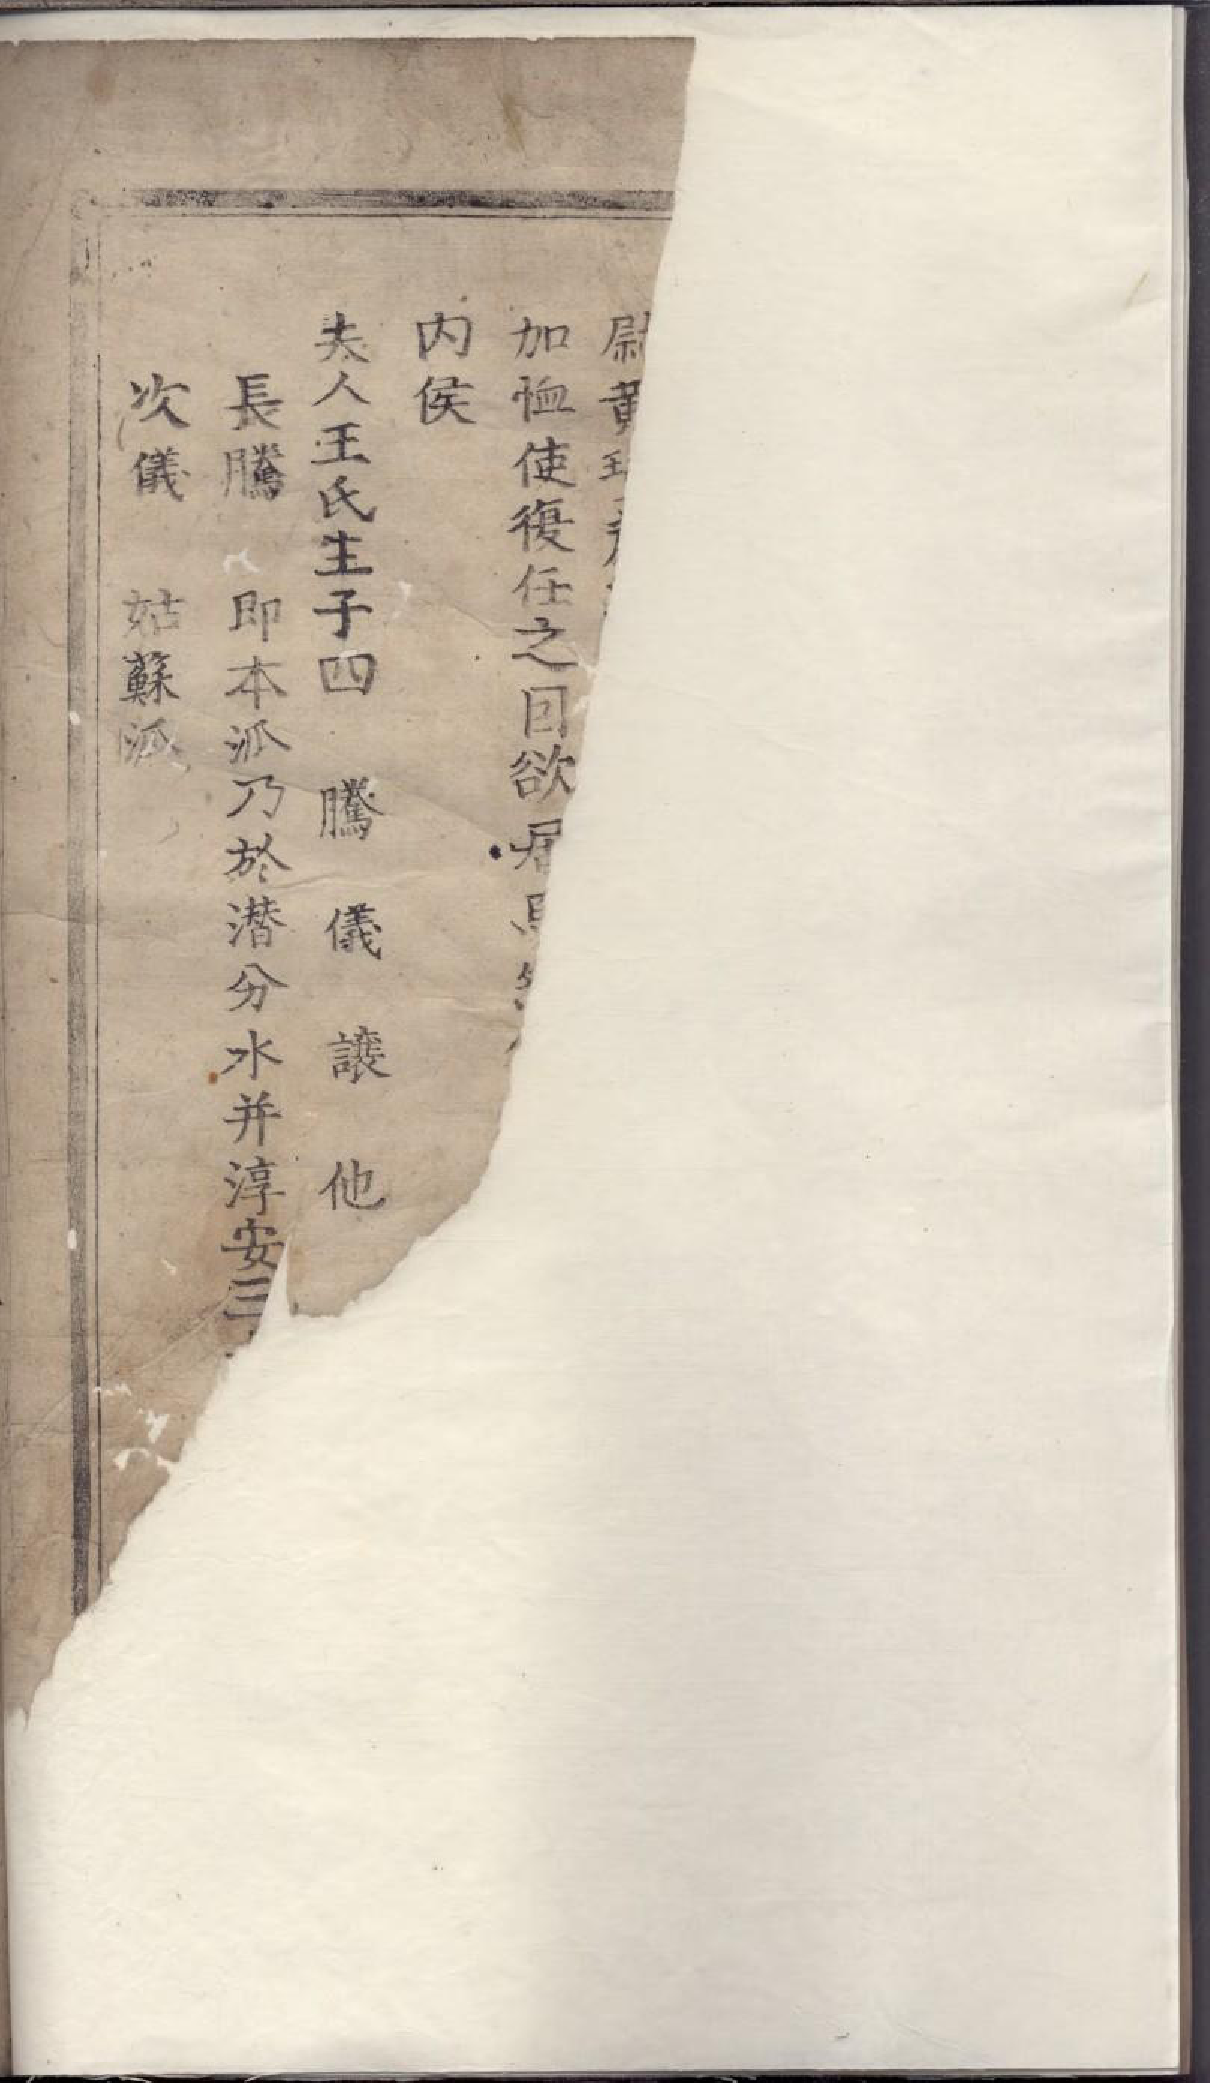 尉黄
加恤使復任之回欲居
内侯
夫人王氏生子四 騰 儀 讓 他
長騰 即本派乃於潛分水并淳安三
次儀 姑蘇派